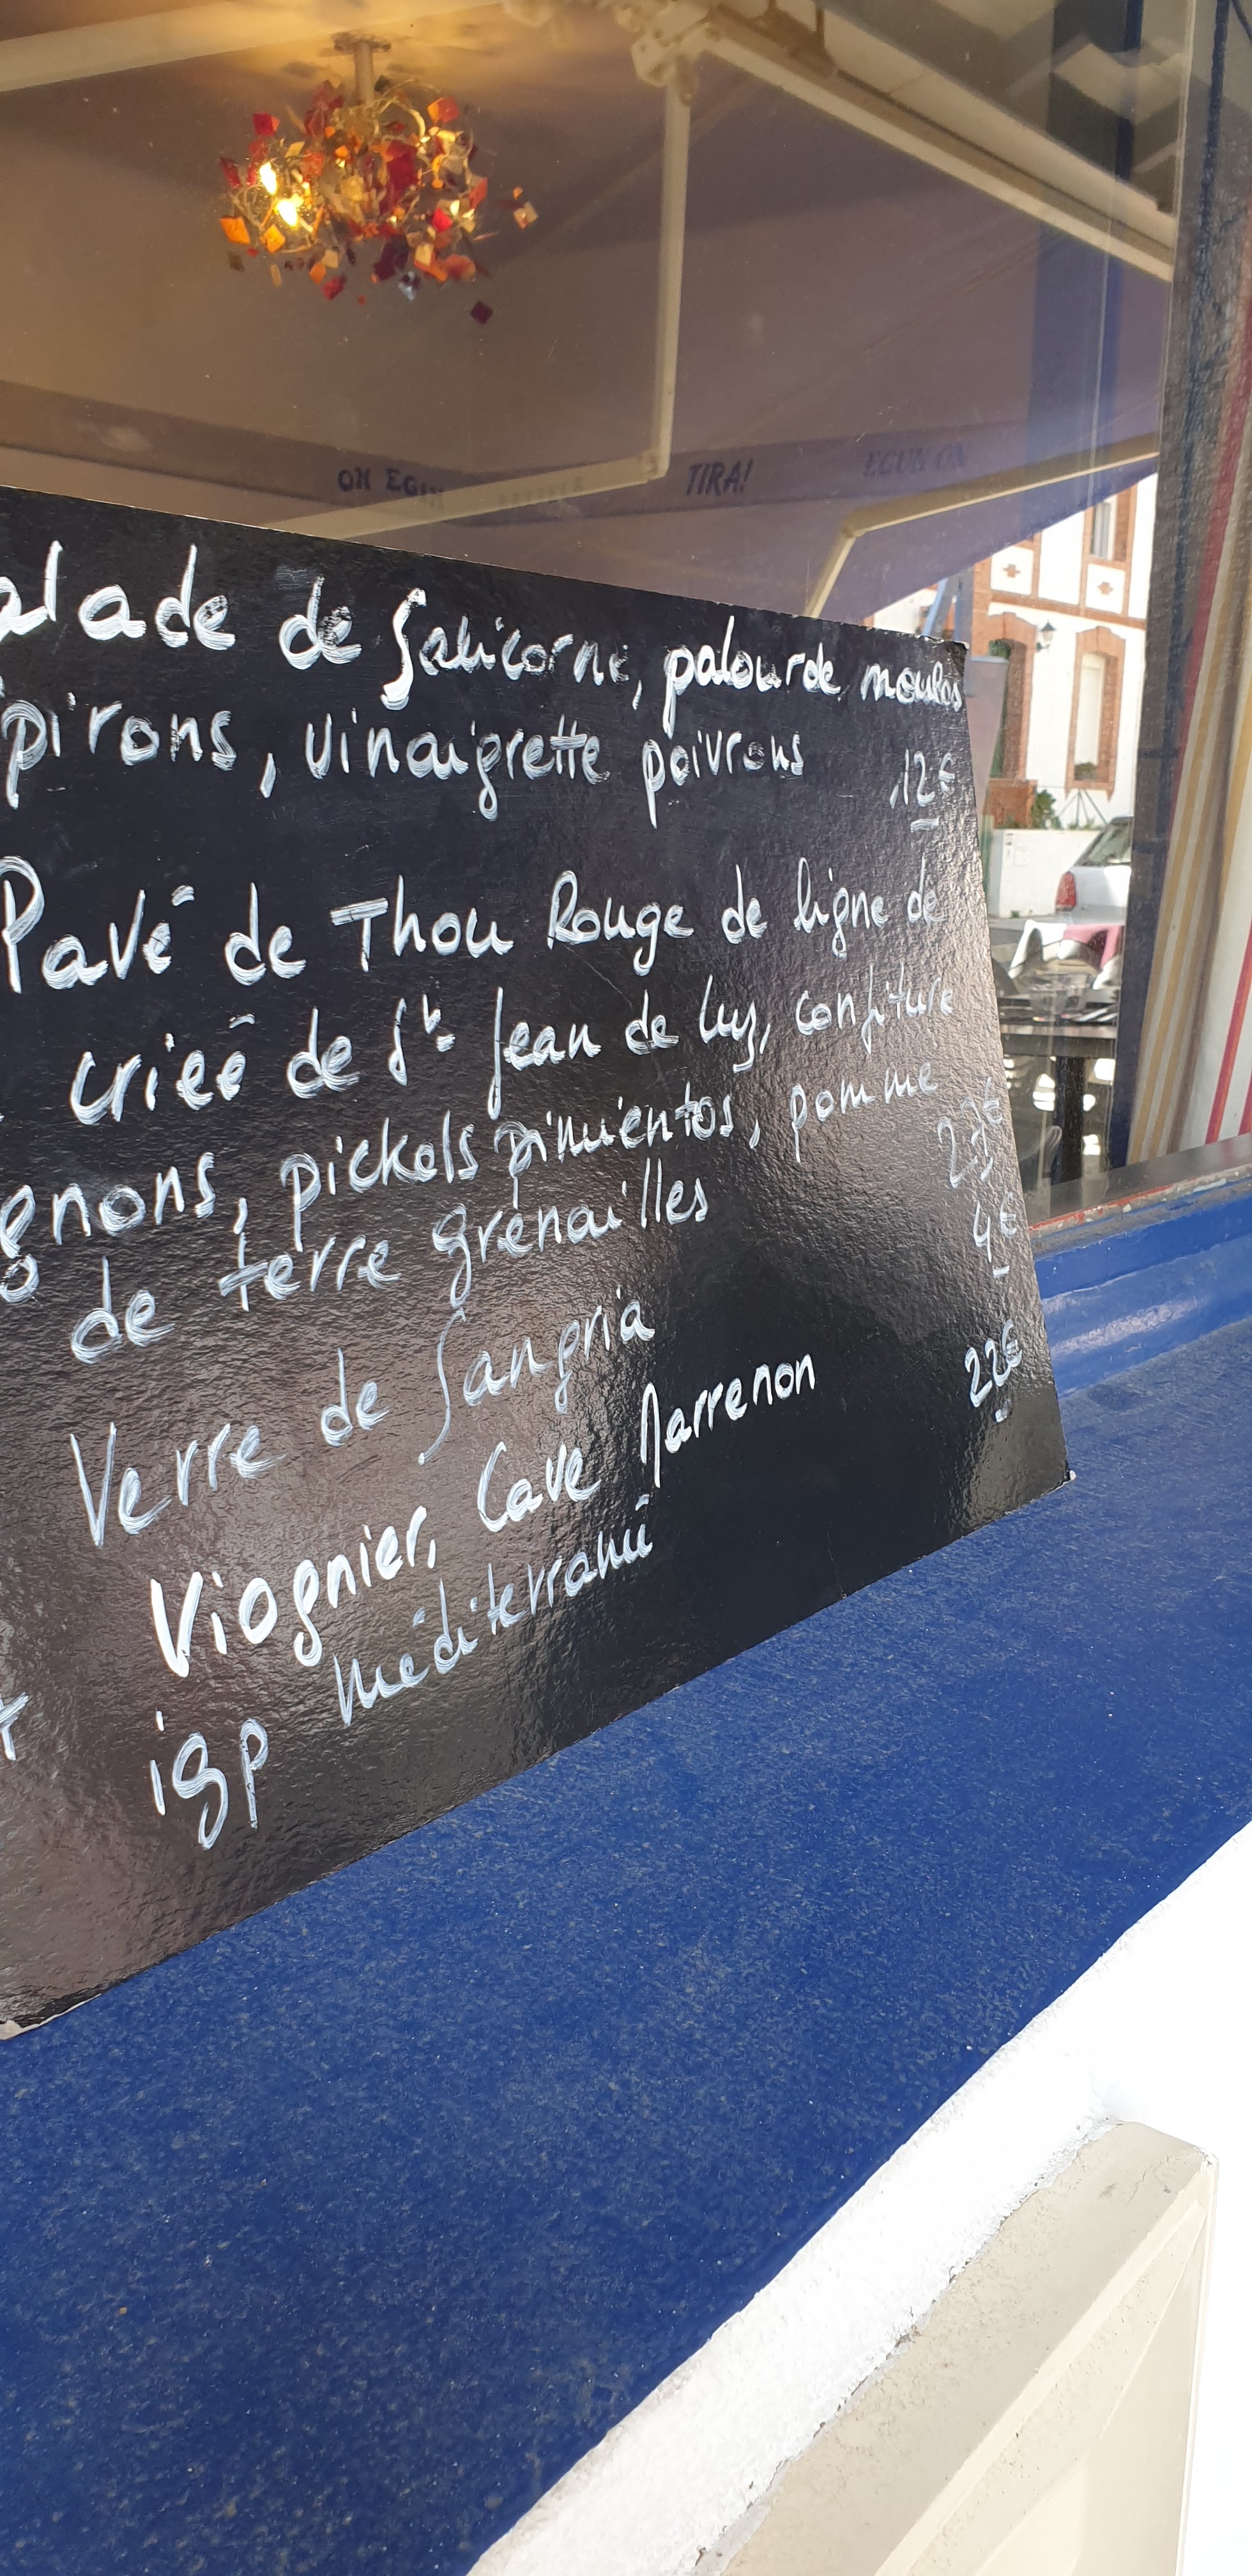 ON EGUN
TIRA!
EGUN ON
alade de Salicorne, palourde, moules
ipirons, vinaigrette poivrons 12€
Pavé de Thou Rouge de ligne de
criée de St Jean de Luz, confiture
gnons, pickels pimientos, pomme
de terre grenailles 23€
Verre de Sangria 4€
Viognier, Cave Marrenon 22€
igp méditerranée